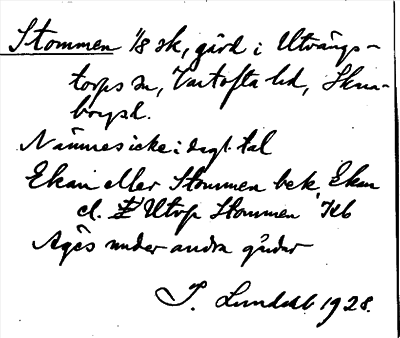 Stommen 1/8 sk, gård i Utvängs-
torps sn, Vartofta hd, Skara-
borgs l.
Nämnes icke i dagl. tal
Ekan eller Stommen bek. Ekan
el. Utvp Stommen Kb
Äges under andra gårdar
I. Lundahl 1928.